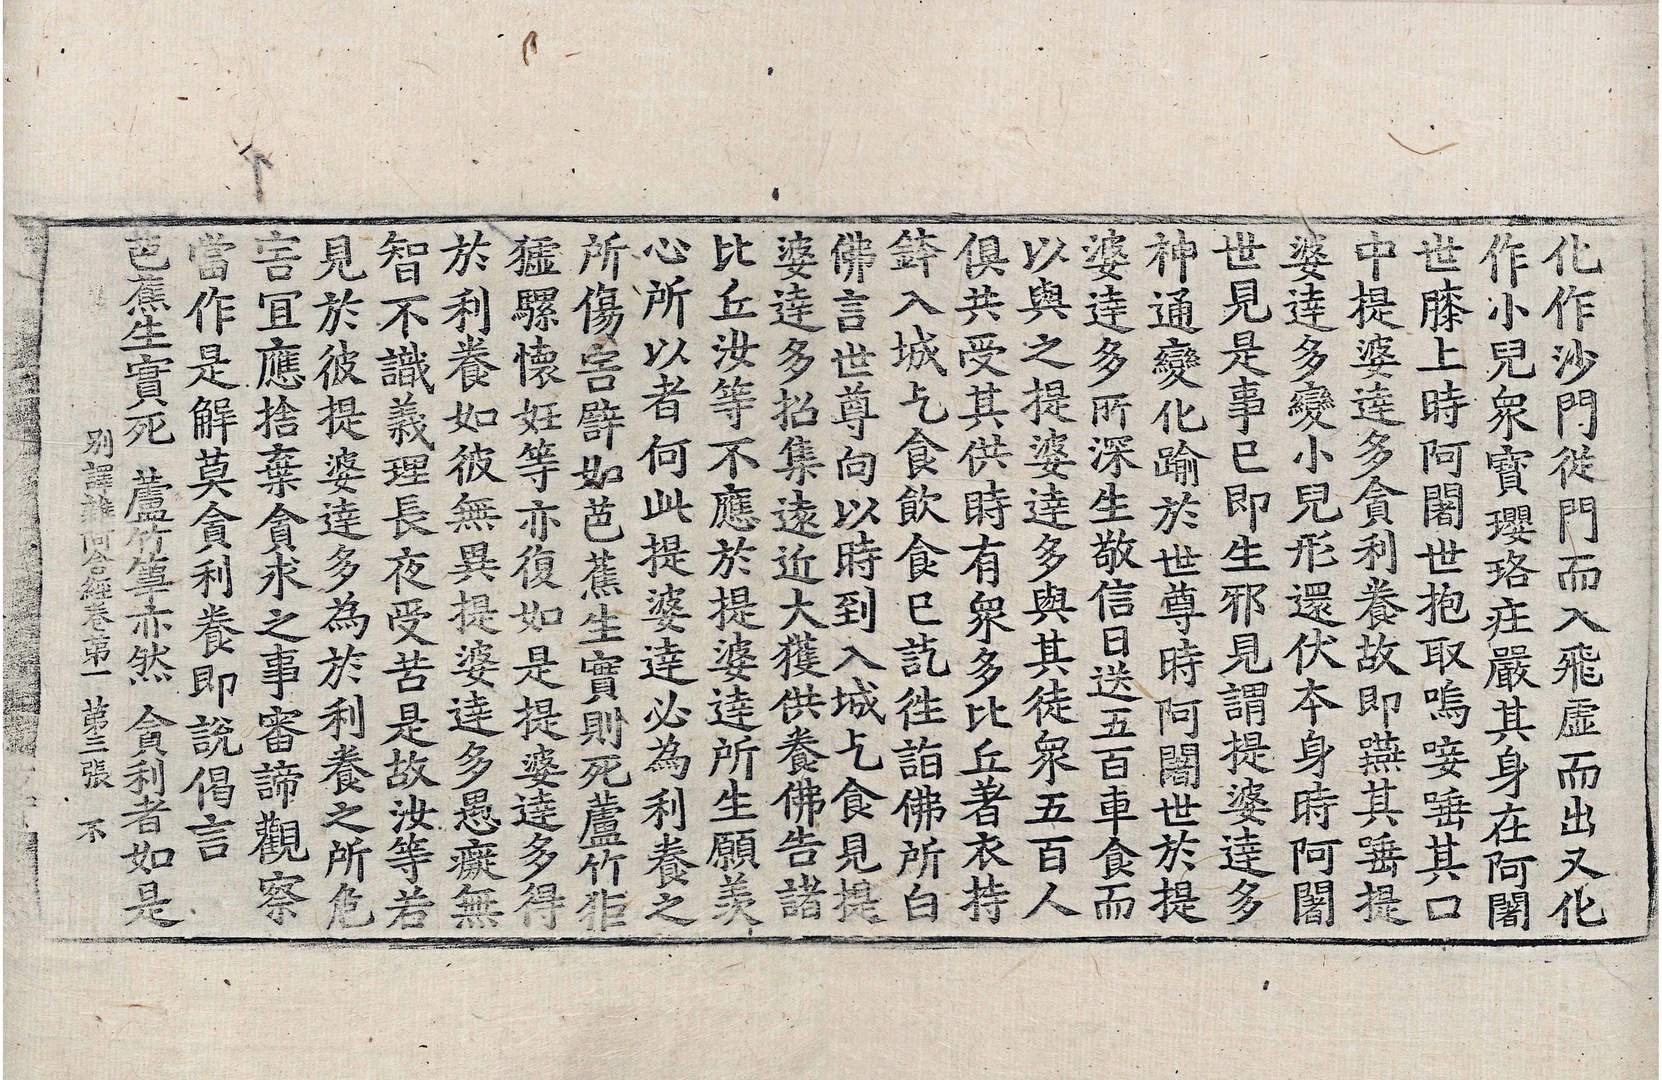 化作沙門從門而入飛虛而出又化
作小兒衆寶瓔珞庄嚴其身在阿闍
世膝上時阿闍世抱取嗚唼唾其口
中提婆達多貪利養故即𫟒其唾提
婆達多變小兒形還伏本身時阿闍
世見是事已即生邪見謂提婆達多
神通變化踰於世尊時阿闍世於提
婆達多所深生敬信日送五百車食而
以與之提婆達多與其徒衆五百人
俱共受其供時有衆多比丘著衣持
鉢入城乞食飲食已訖徃詣佛所白
佛言世尊向以時到入城乞食見提
婆達多招集遠近大獲供養佛告諸
比丘汝等不應於提婆達所生願羨
心所以者何此提婆達必為利養之
所傷害譬如芭蕉生實則死蘆竹駏
驉騾懷妊等亦復如是提婆達多得
於利養如彼無異提婆達多愚癡無
智不識義理長夜受苦是故汝等若
見於彼提婆達多為於利養之所危
害宜應捨棄貪求之事審諦觀察
當作是解莫貪利養即說偈言
芭蕉生實死 蘆竹葦亦然 貪利者如是
別譯雜阿含經卷第一 第三張 不